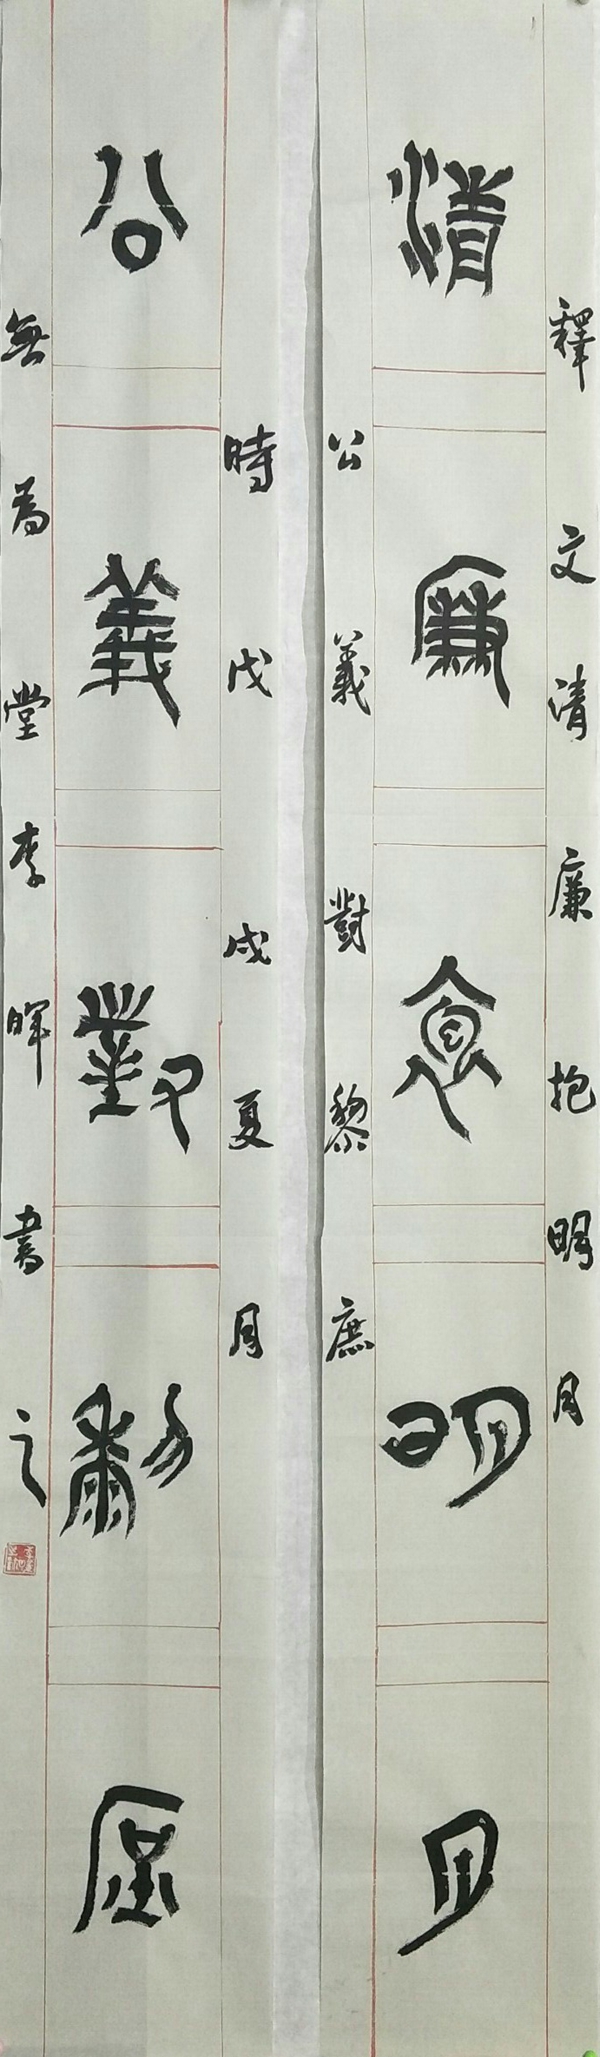 釋文清廉抱明月
清廉抱明月
公義對黎庶
時戊戌夏月
公義對黎庶
無為堂李暉書之